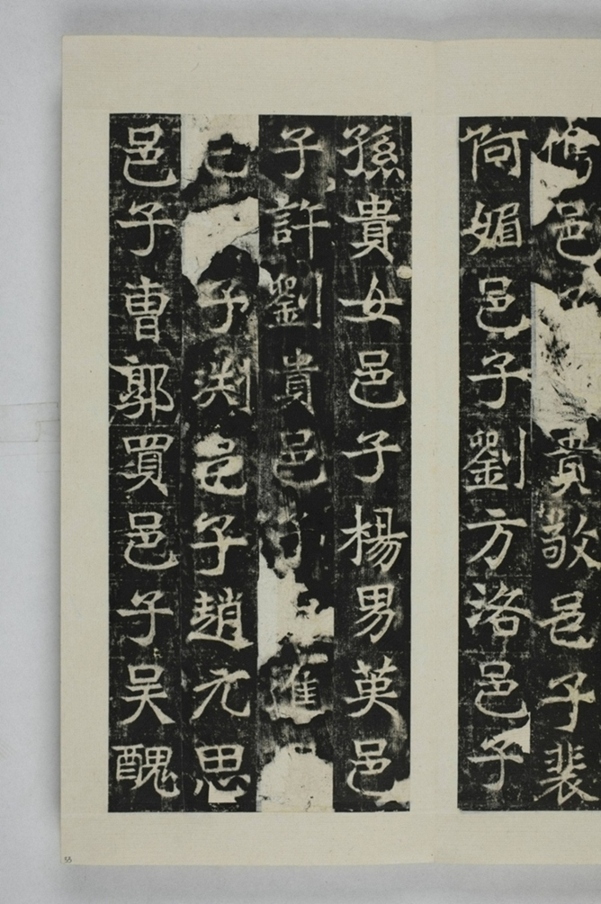 邑貴敬邑子裴
阿媚邑子劉方洛邑子
孫貴女邑子楊男英邑
子許劉貴邑子
子邑子趙元思
邑子曹郭買邑子吳醜